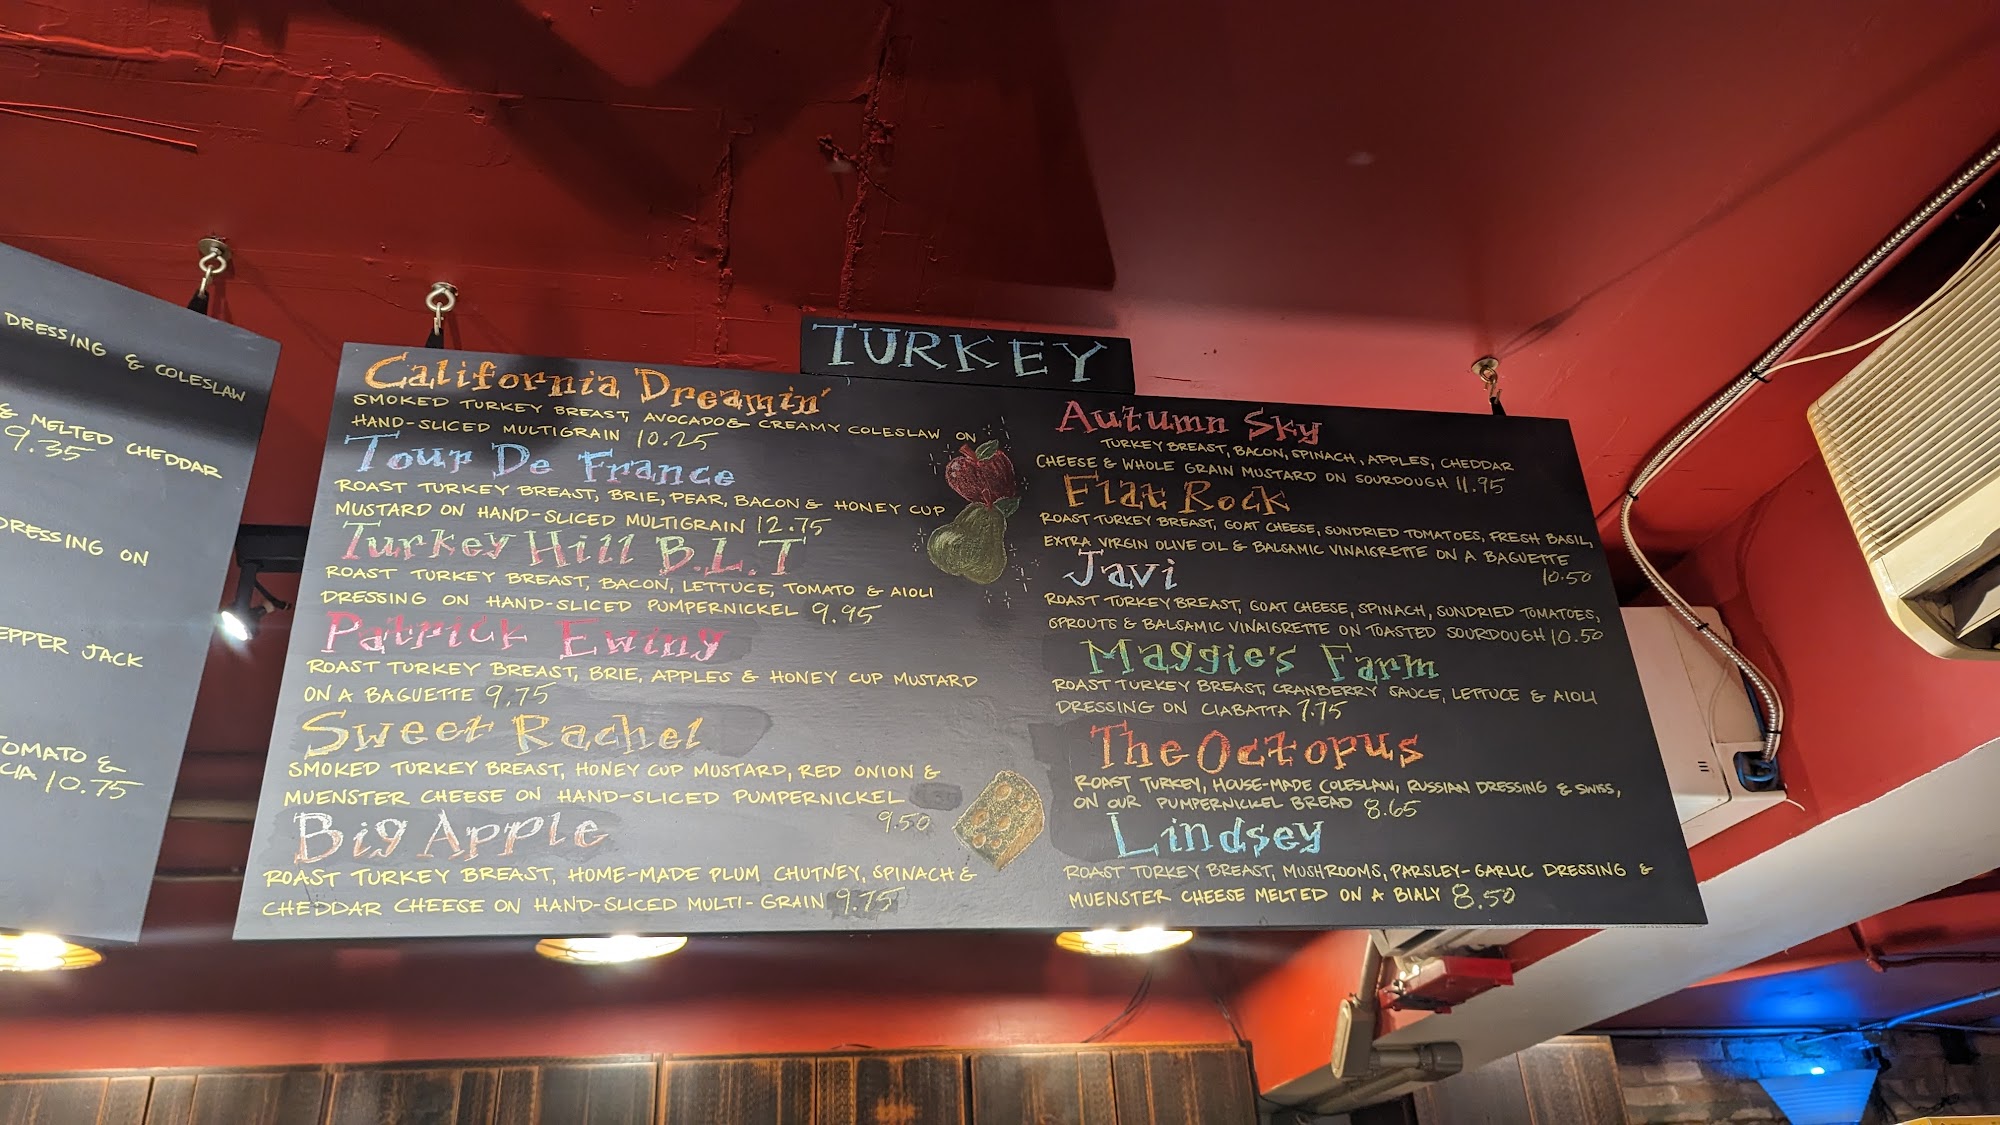 DRESSING & COLESLAW
& MELTED CHEDDAR
9.35
DRESSING ON
EPPER JACK
TOMATO &
CIA 10.75
TURKEY
California Dreamin'
SMOKED TURKEY BREAST, AVOCADO & CREAMY COLESLAW ON
HAND-SLICED MULTIGRAIN 10.25
Tour De France
ROAST TURKEY BREAST, BRIE, PEAR, BACON & HONEY CUP
MUSTARD ON HAND-SLICED MULTIGRAIN 12.75
Turkey Hill B.L.T
ROAST TURKEY BREAST, BACON, LETTUCE, TOMATO & AIOLI
DRESSING ON HAND-SLICED PUMPERNICKEL 9.95
Patrick Ewing
ROAST TURKEY BREAST, BRIE, APPLES & HONEY CUP MUSTARD
ON A BAGUETTE 9.75
Sweet Rachel
SMOKED TURKEY BREAST, HONEY CUP MUSTARD, RED ONION &
MUENSTER CHEESE ON HAND-SLICED PUMPERNICKEL
9.50
Big Apple
ROAST TURKEY BREAST, HOME-MADE PLUM CHUTNEY, SPINACH &
CHEDDAR CHEESE ON HAND-SLICED MULTI-GRAIN 9.75
Autumn Sky
TURKEY BREAST, BACON, SPINACH, APPLES, CHEDDAR
CHEESE & WHOLE GRAIN MUSTARD ON SOURDOUGH 11.95
Flat Rock
ROAST TURKEY BREAST, GOAT CHEESE, SUNDRIED TOMATOES, FRESH BASIL,
EXTRA VIRGIN OLIVE OIL & BALSAMIC VINAIGRETTE ON A BAGUETTE
10.50
Javi
ROAST TURKEY BREAST, GOAT CHEESE, SPINACH, SUNDRIED TOMATOES,
SPROUTS & BALSAMIC VINAIGRETTE ON TOASTED SOURDOUGH 10.50
Maggie's Farm
ROAST TURKEY BREAST, CRANBERRY SAUCE, LETTUCE & AIOLI
DRESSING ON CIABATTA 7.75
The Octopus
ROAST TURKEY, HOUSE-MADE COLESLAW, RUSSIAN DRESSING & SWISS,
ON OUR PUMPERNICKEL BREAD 8.65
Lindsey
ROAST TURKEY BREAST, MUSHROOMS, PARSLEY-GARLIC DRESSING &
MUENSTER CHEESE MELTED ON A BIALY 8.50